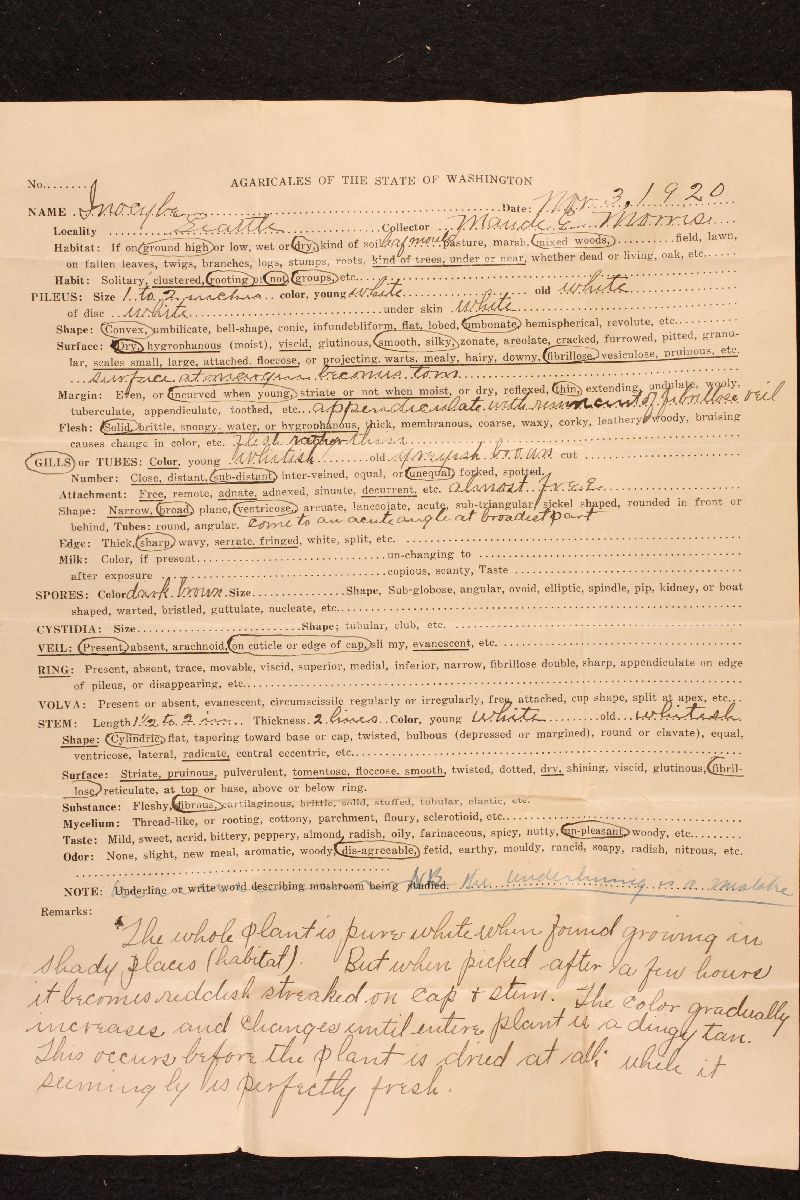 AGARICALES OF THE STATE OF WASHINGTON
No........
NAME . Inocybe ........ Date: Nov. 3, 1920
Locality ..... Seattle ..... Collector .. Maude E. Morris ...
Habitat: If on ground high or low, wet or dry, kind of soil leaf mould pasture, marsh, mixed woods, .......... field, lawn,
on fallen leaves, twigs, branches, logs, stumps, roots, kind of trees, under or near, whether dead or living, oak, etc......
Habit: Solitary, clustered, rooting or not, groups, etc....
PILEUS: Size 1 to 2 inches .. color, young white ..... old white
of disc .. white ........ under skin .. white
Shape: Convex, umbilicate, bell-shape, conic, infundebliform, flat, lobed, umbonate, hemispherical, revolute, etc..........
Surface: Dry, hygrophanous (moist), viscid, glutinous, smooth, silky, zonate, areolate, cracked, furrowed, pitted, granu-
lar, scales small, large, attached, floccose, or projecting, warts, mealy, hairy, downy, fibrillose, vesiculose, pruinous, etc.
... surface at margin becomes torn
Margin: Even, or incurved when young, striate or not when moist, or dry, reflexed, thin, extending, undulate, wooly,
tuberculate, appendiculate, toothed, etc... appendiculate with remnants of fibrillose veil
Flesh: Solid, brittle, spongy, water, or hygrophanous, thick, membranous, coarse, waxy, corky, leathery, woody, bruising
causes change in color, etc. flesh rather thin
GILLS or TUBES: Color, young whitish ..... old greyish brown cut
Number: Close, distant, sub-distant, inter-veined, equal, or unequal, forked, spotted.
Attachment: Free, remote, adnate, adnexed, sinuate, decurrent, etc. almost free
Shape: Narrow, broad, plane, ventricose, arcuate, lanceolate, acute, sub-triangular, sickel shaped, rounded in front or
behind, Tubes: round, angular. Come to an acute angle at broadest part
Edge: Thick, sharp, wavy, serrate, fringed, white, split, etc.
Milk: Color, if present ........ un-changing to
after exposure ........ copious, scanty, Taste
SPORES: Color dark brown Size ........ Shape, Sub-globose, angular, ovoid, elliptic, spindle, pip, kidney, or boat
shaped, warted, bristled, guttulate, nucleate, etc....
CYSTIDIA: Size ........ Shape; tubular, club, etc.
VEIL: Present, absent, arachnoid, on cuticle or edge of cap, sli my, evanescent, etc.
RING: Present, absent, trace, movable, viscid, superior, medial, inferior, narrow, fibrillose double, sharp, appendiculate on edge
of pileus, or disappearing, etc....
VOLVA: Present or absent, evanescent, circumscissile regularly or irregularly, free, attached, cup shape, split at apex, etc...
STEM: Length 1½ to 2 in... Thickness 2 lines. Color, young white ..... old.. whitish
Shape: Cylindric, flat, tapering toward base or cap, twisted, bulbous (depressed or margined), round or clavate), equal,
ventricose, lateral, radicate, central eccentric, etc....
Surface: Striate, pruinous, pulverulent, tomentose, floccose, smooth, twisted, dotted, dry, shining, viscid, glutinous, fibril-
lose, reticulate, at top or base, above or below ring.
Substance: Fleshy, fibrous, cartilaginous, brittle, solid, stuffed, tubular, elastic, etc.
Mycelium: Thread-like, or rooting, cottony, parchment, floury, sclerotioid, etc....
Taste: Mild, sweet, acrid, bittery, peppery, almond, radish, oily, farinaceous, spicy, nutty, un-pleasant, woody, etc..........
Odor: None, slight, new meal, aromatic, woody, dis-agreeable, fetid, earthy, mouldy, rancid, soapy, radish, nitrous, etc.
NOTE: Underline or write word describing mushroom being studied. NB. The underlining is a mistake
Remarks:
The whole plant is pure white when found growing in
shady places (habitat). But when picked after a few hours
it becomes reddish streaked on cap & stem. The color gradually
increases and changes until entire plant is a dingy tan.
This occurs before the plant is dried at all; while it
seemingly is perfectly fresh.